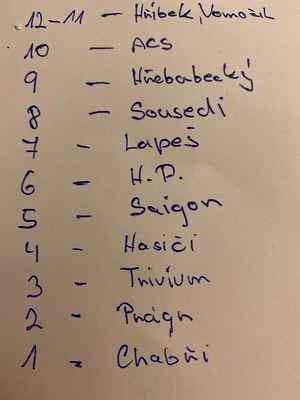 12-11 - Hříbek, Vomočil
10 - ACS
9 - Hřebabecký
8 - Sousedi
7 - Lapeš
6 - H.P.
5 - Saigon
4 - Hasiči
3 - Trivium
2 - Prágr
1 - Chabři